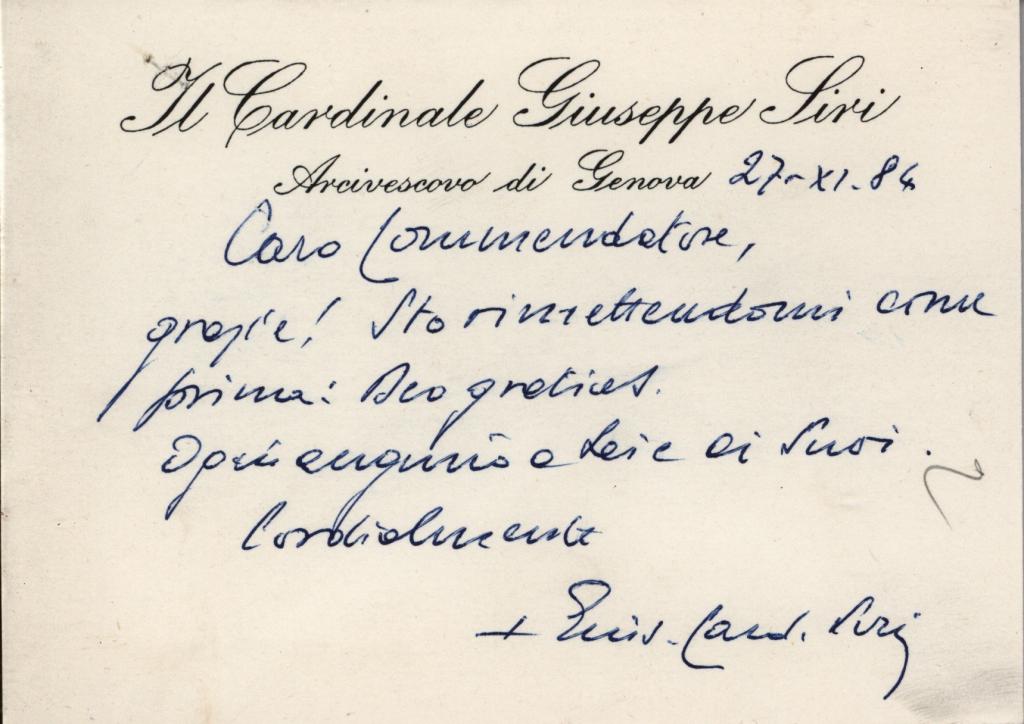 Il Cardinale Giuseppe Siri
Arcivescovo di Genova 27-XI-84
Caro Commendatore,
grazie! Sto rimettendomi come
prima: Deo gratias.
Ogni augurio a Lei e ai Suoi.
Cordialmente
+ Card. Siri